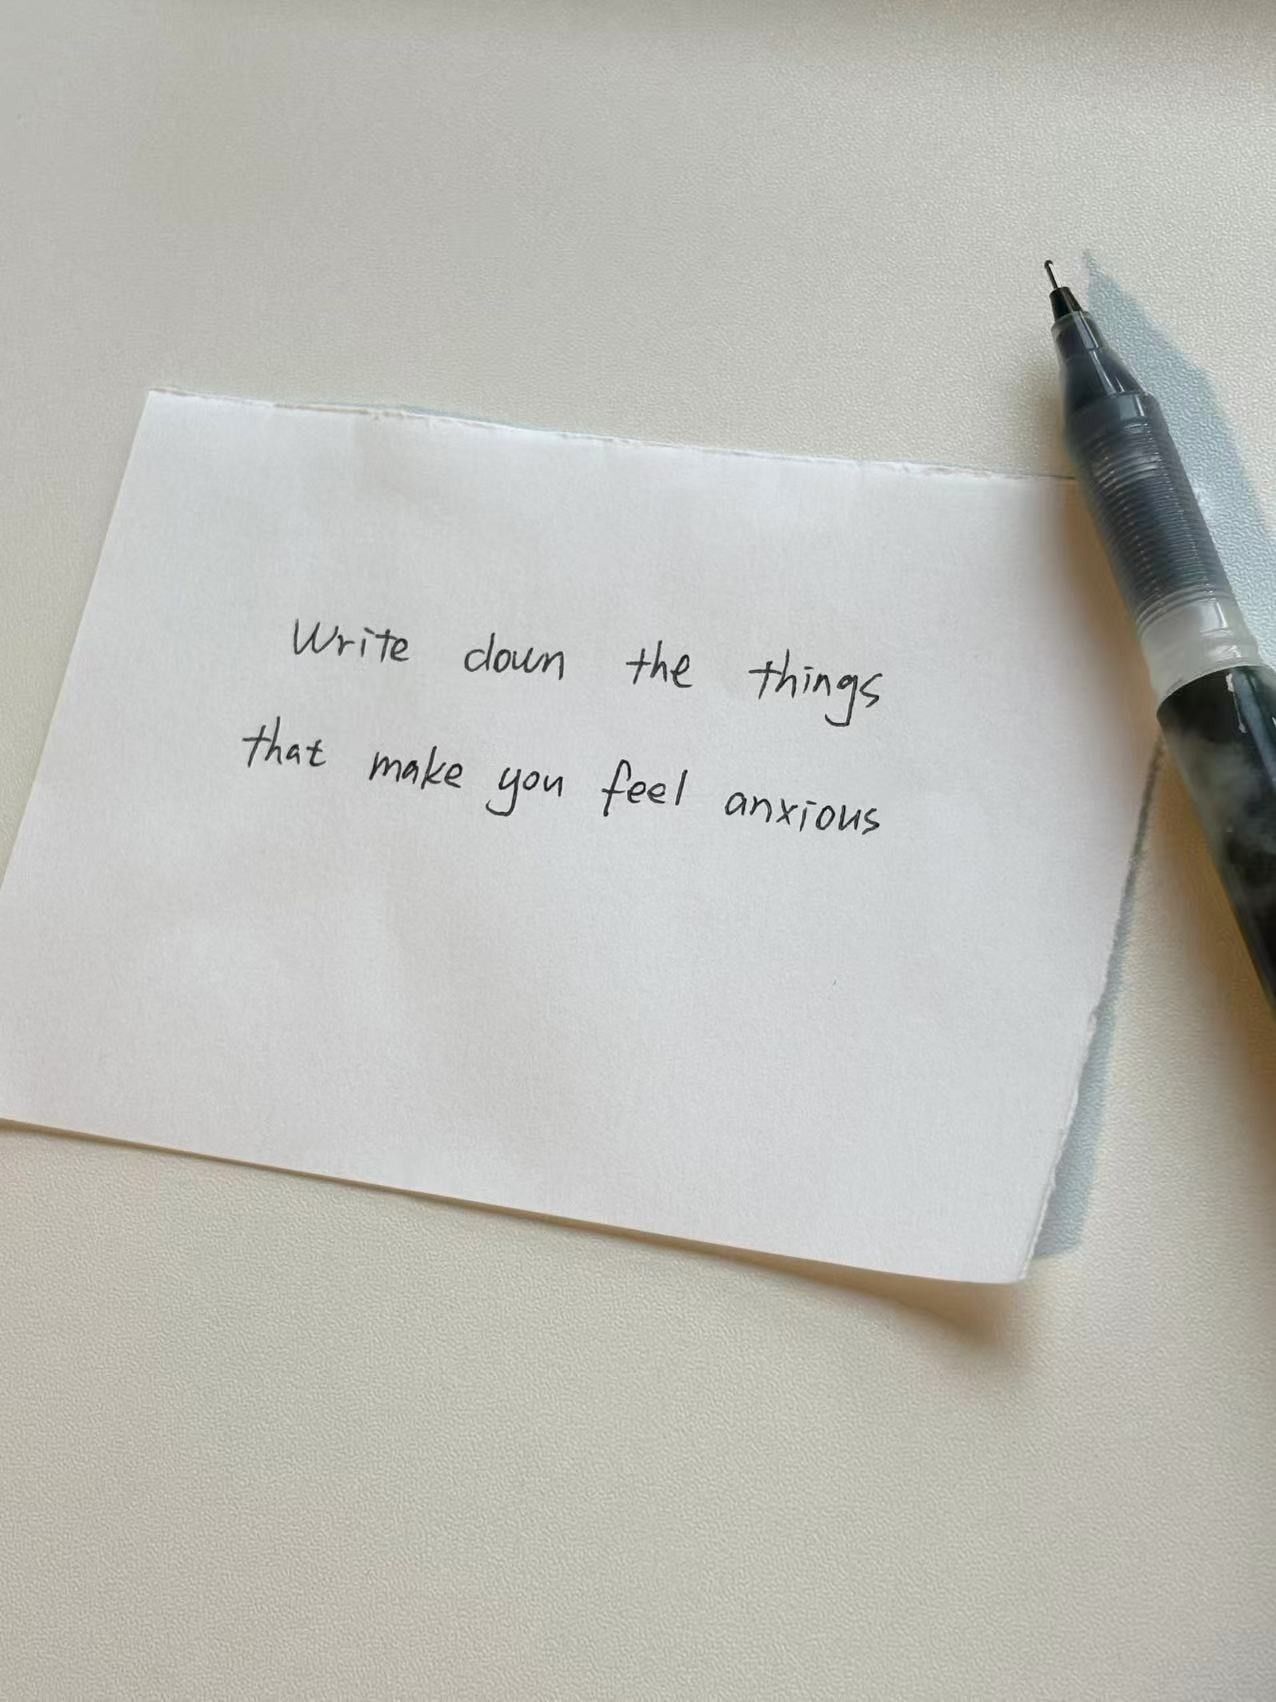 Write down the things
that make you feel anxious